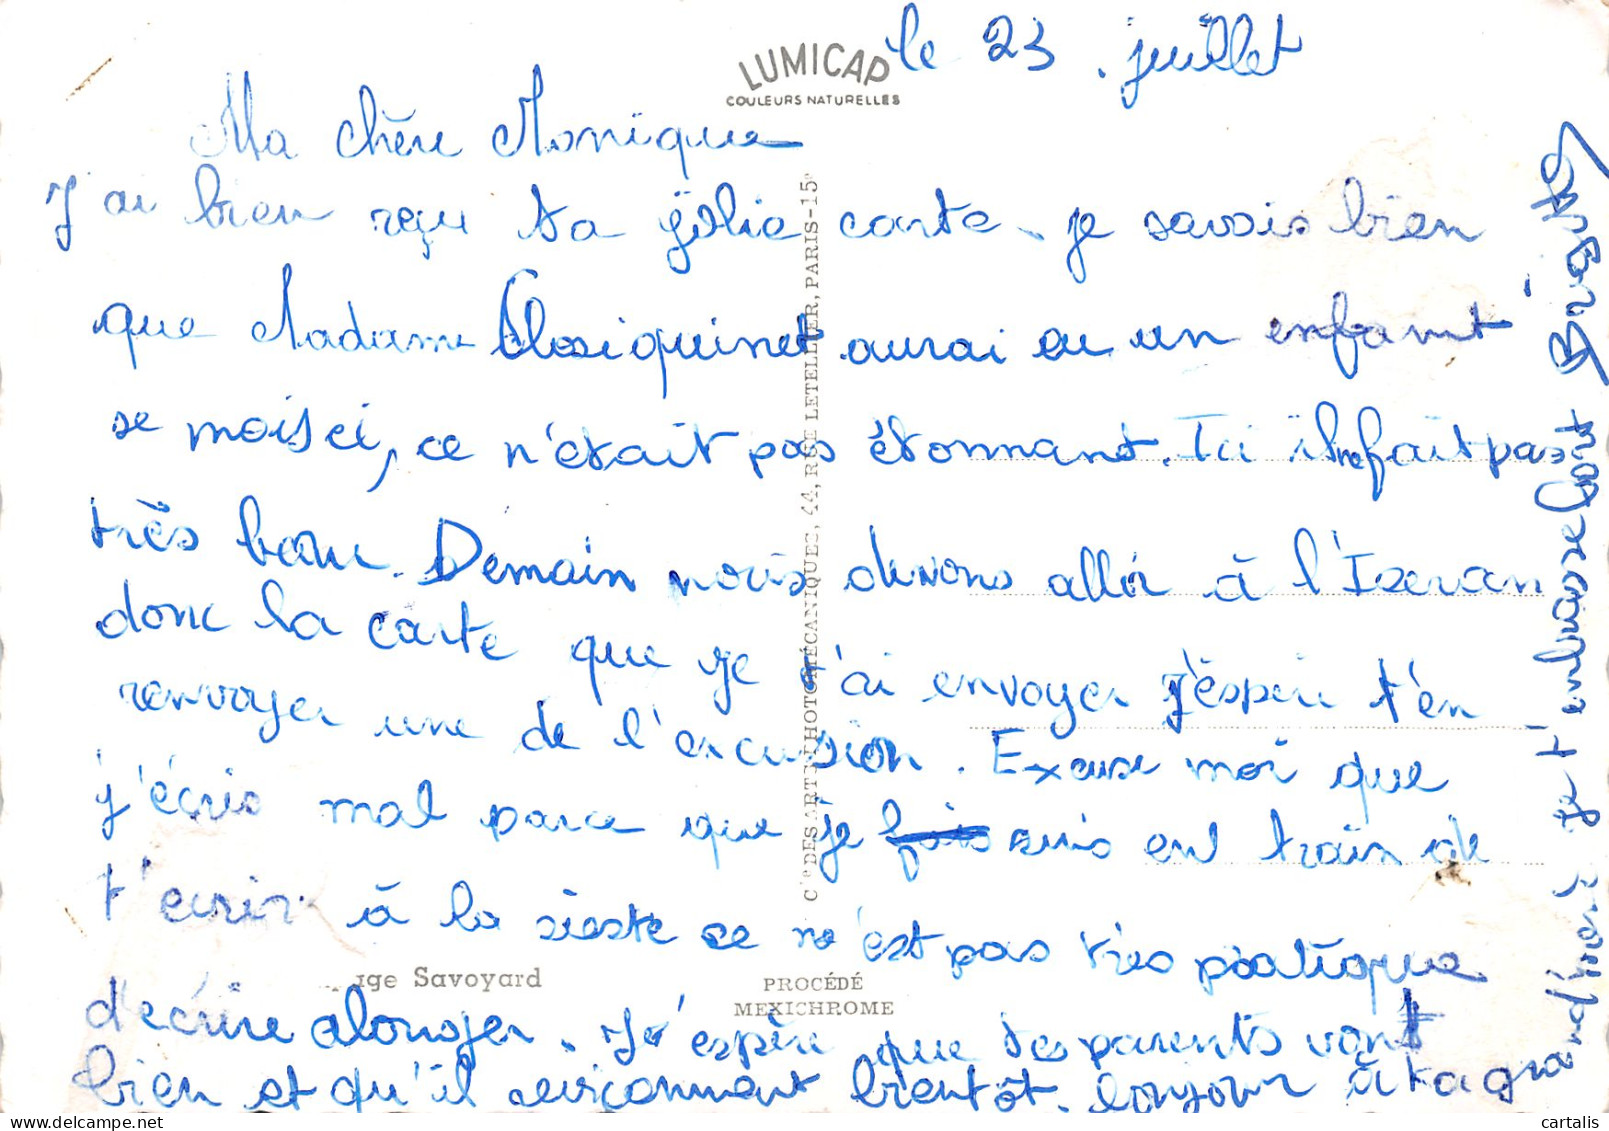 le 23 juillet
LUMICAP
COULEURS NATURELLES
Ma chère Monique
J'ai bien reçu ta jolie carte. je savais bien
que Madame aurai eu un enfant
se moisci, ce n'était pas étonnant. Ici il ne fait pas
très beau. Demain nous devons aller à l'Iseran
donc la carte que je t'ai envoyer j'espère t'en
renvoyer une de l'excursion. Excuse moi que
j'écris mal parce que je fais suis en train de
t'ecrir à la sieste ce n'est pas très pratique
d'ecrire alonger. J'espère que tes parents vont
bien et qu'il bientôt. bonjour à ta grand'mère
je t'embrasse fort Brigitte
Cie DES ARTS PHOTOMÉCANIQUES, 44, RUE LETELLIER, PARIS-15e
age Savoyard
PROCÉDÉ
MEXICHROME
www.delcampe.net
cartalis